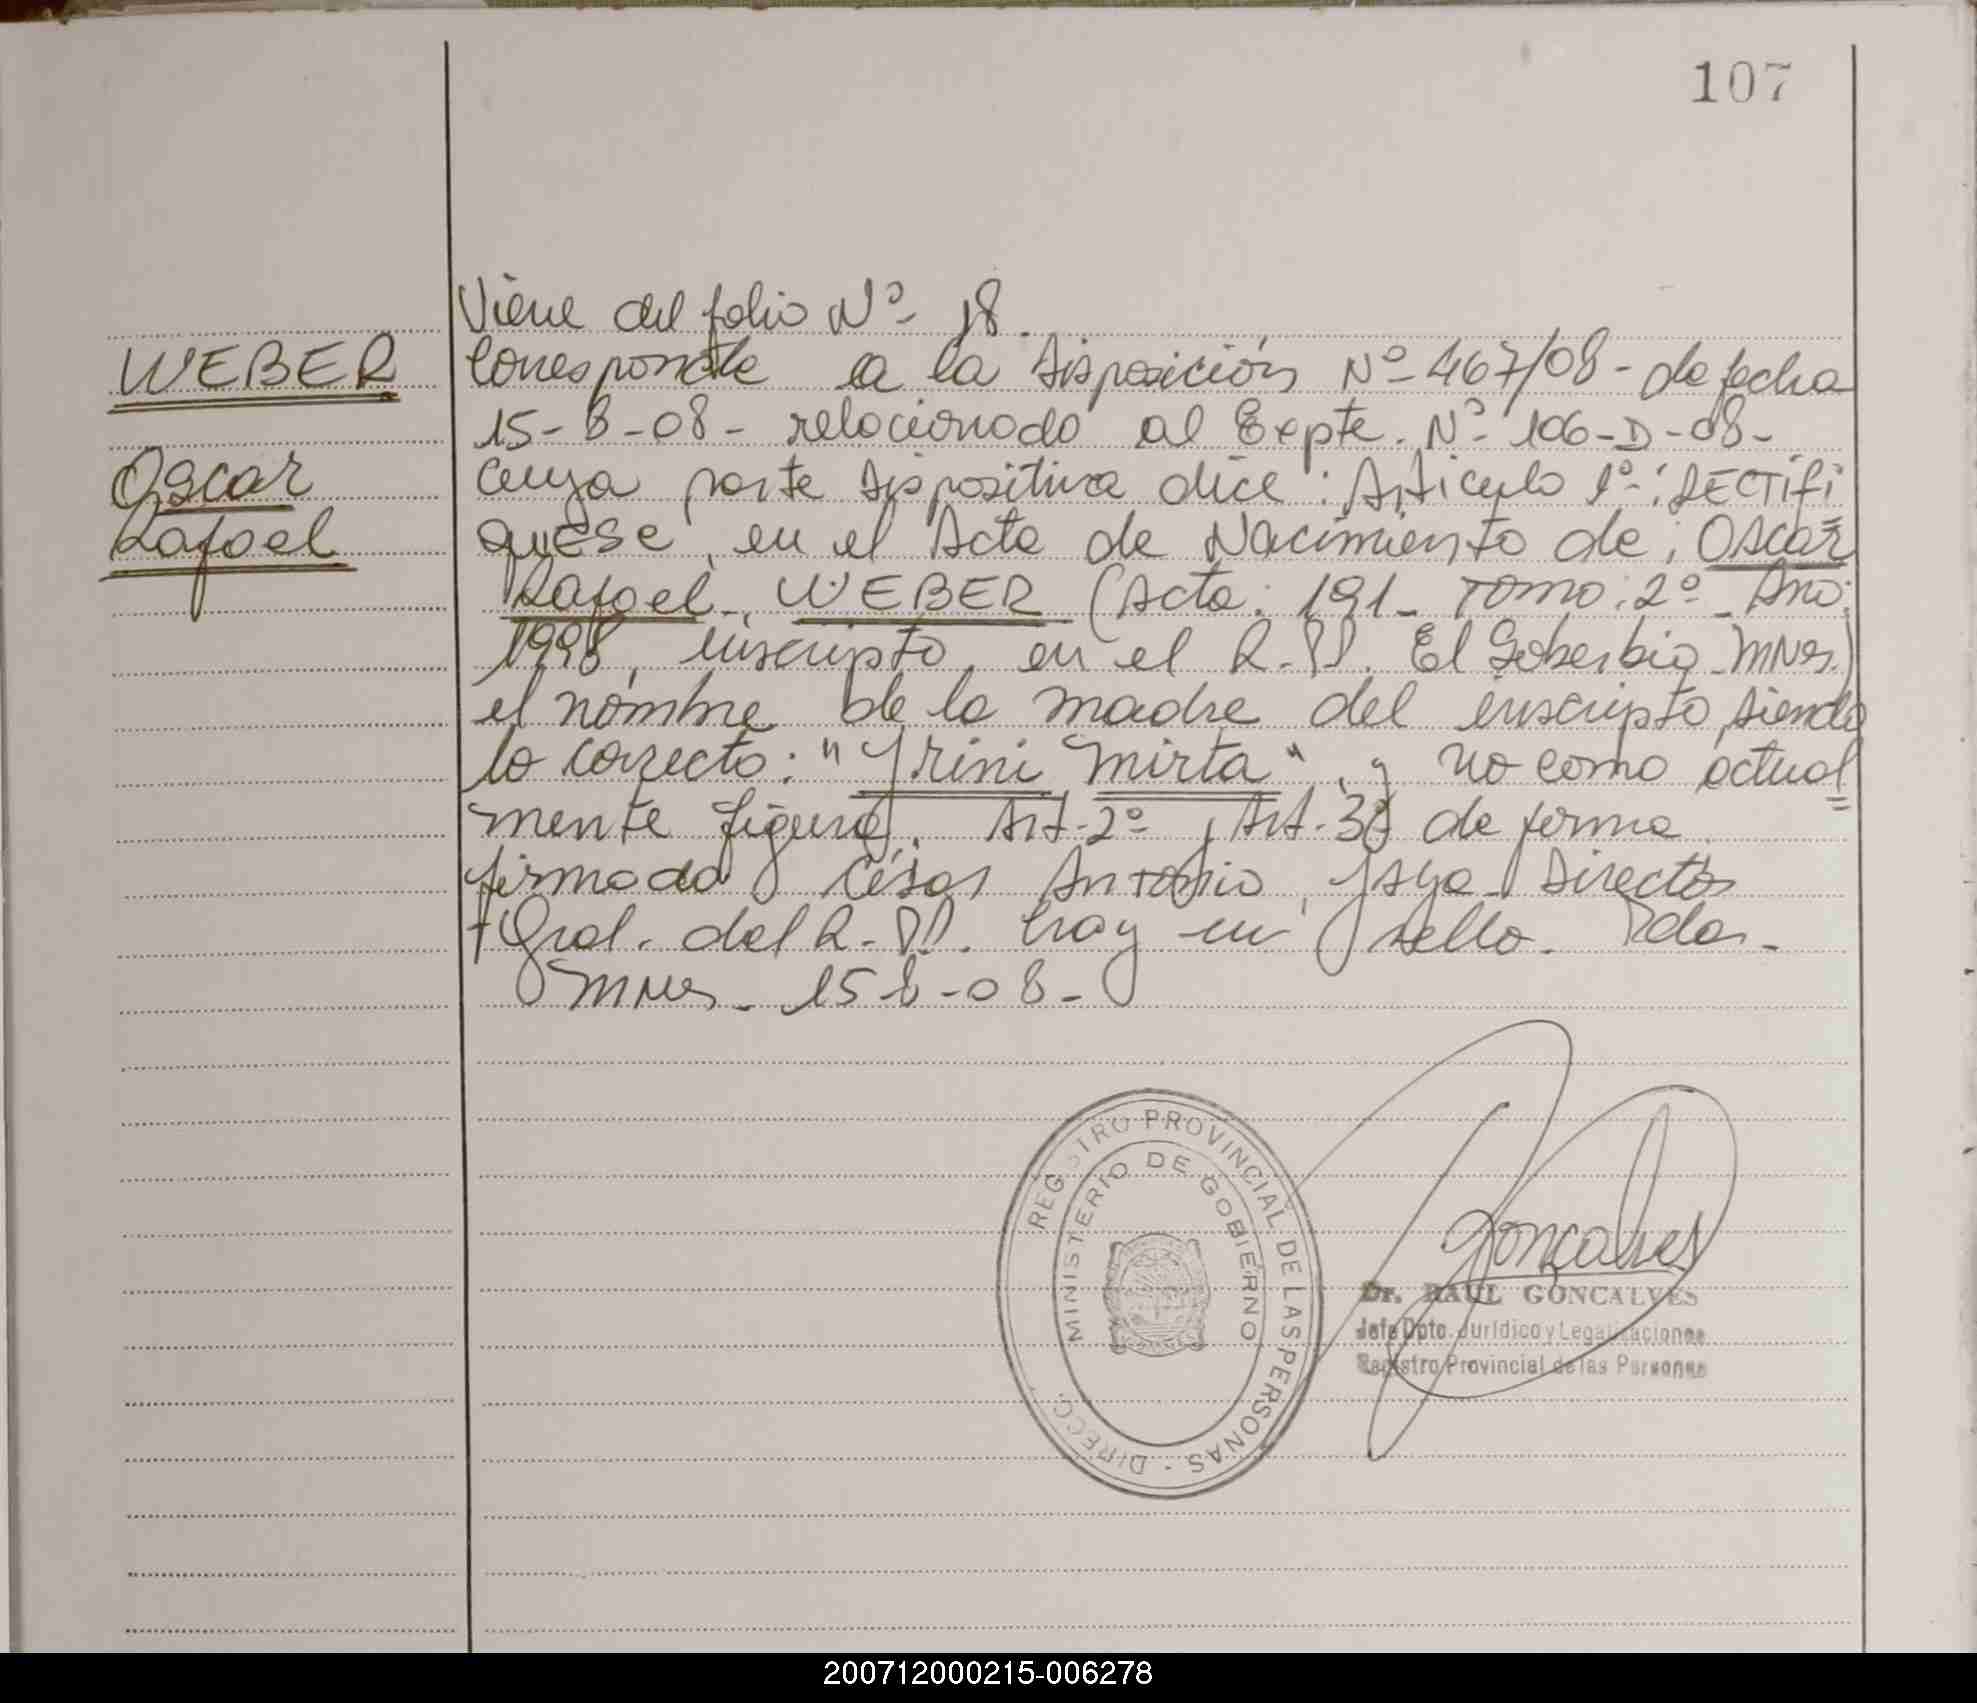 107
Viene del folio Nº 18.
WEBER
Corresponde a la Disposición Nº 467/08 - de fecha
15-8-08- relacionado al Expte. Nº 106-D-08-
Oscar
cuya parte dispositiva dice: Articulo 1º: RECTIFI
Rafael
QUESE, en el Acta de Nacimiento de; OSCAR
Rafael WEBER (Acta: 191- Tomo: 2º - Año:
1998, inscripto en el R.PP. El Soberbio - MNES.)
el nombre de la madre del inscripto, siendo
lo correcto: "Yrini Mirta", y no como actual
mente figura. Art-2º, Art-3º de forma
firmado César Antonio Director
Gral. del R.PP. hay un sello. Pdas.
MNES - 15-8-08-
REGISTRO PROVINCIAL DE LAS PERSONAS - DIRECC.
MINISTERIO DE GOBIERNO
Goncalves
Dr. RAUL GONCALVES
Jefe Dpto. Jurídico y Legalizaciones
Registro Provincial de las Personas
200712000215-006278